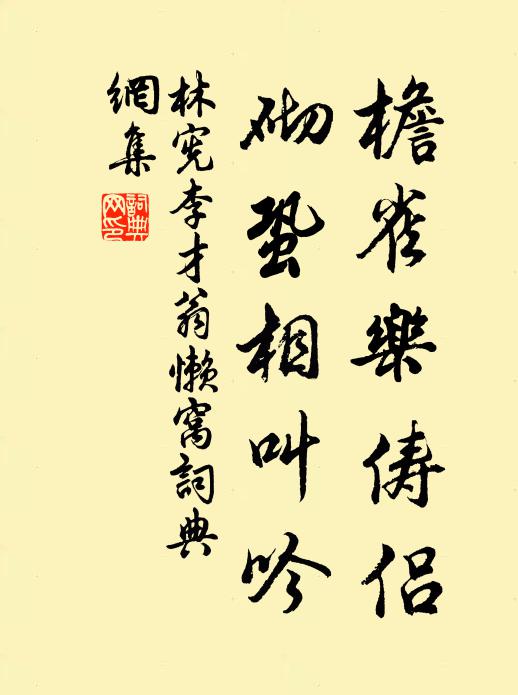 檐雀樂儔侶
砌蛩相叫吟
林宪李才翁懒窩詞典
網集
詞典
网印